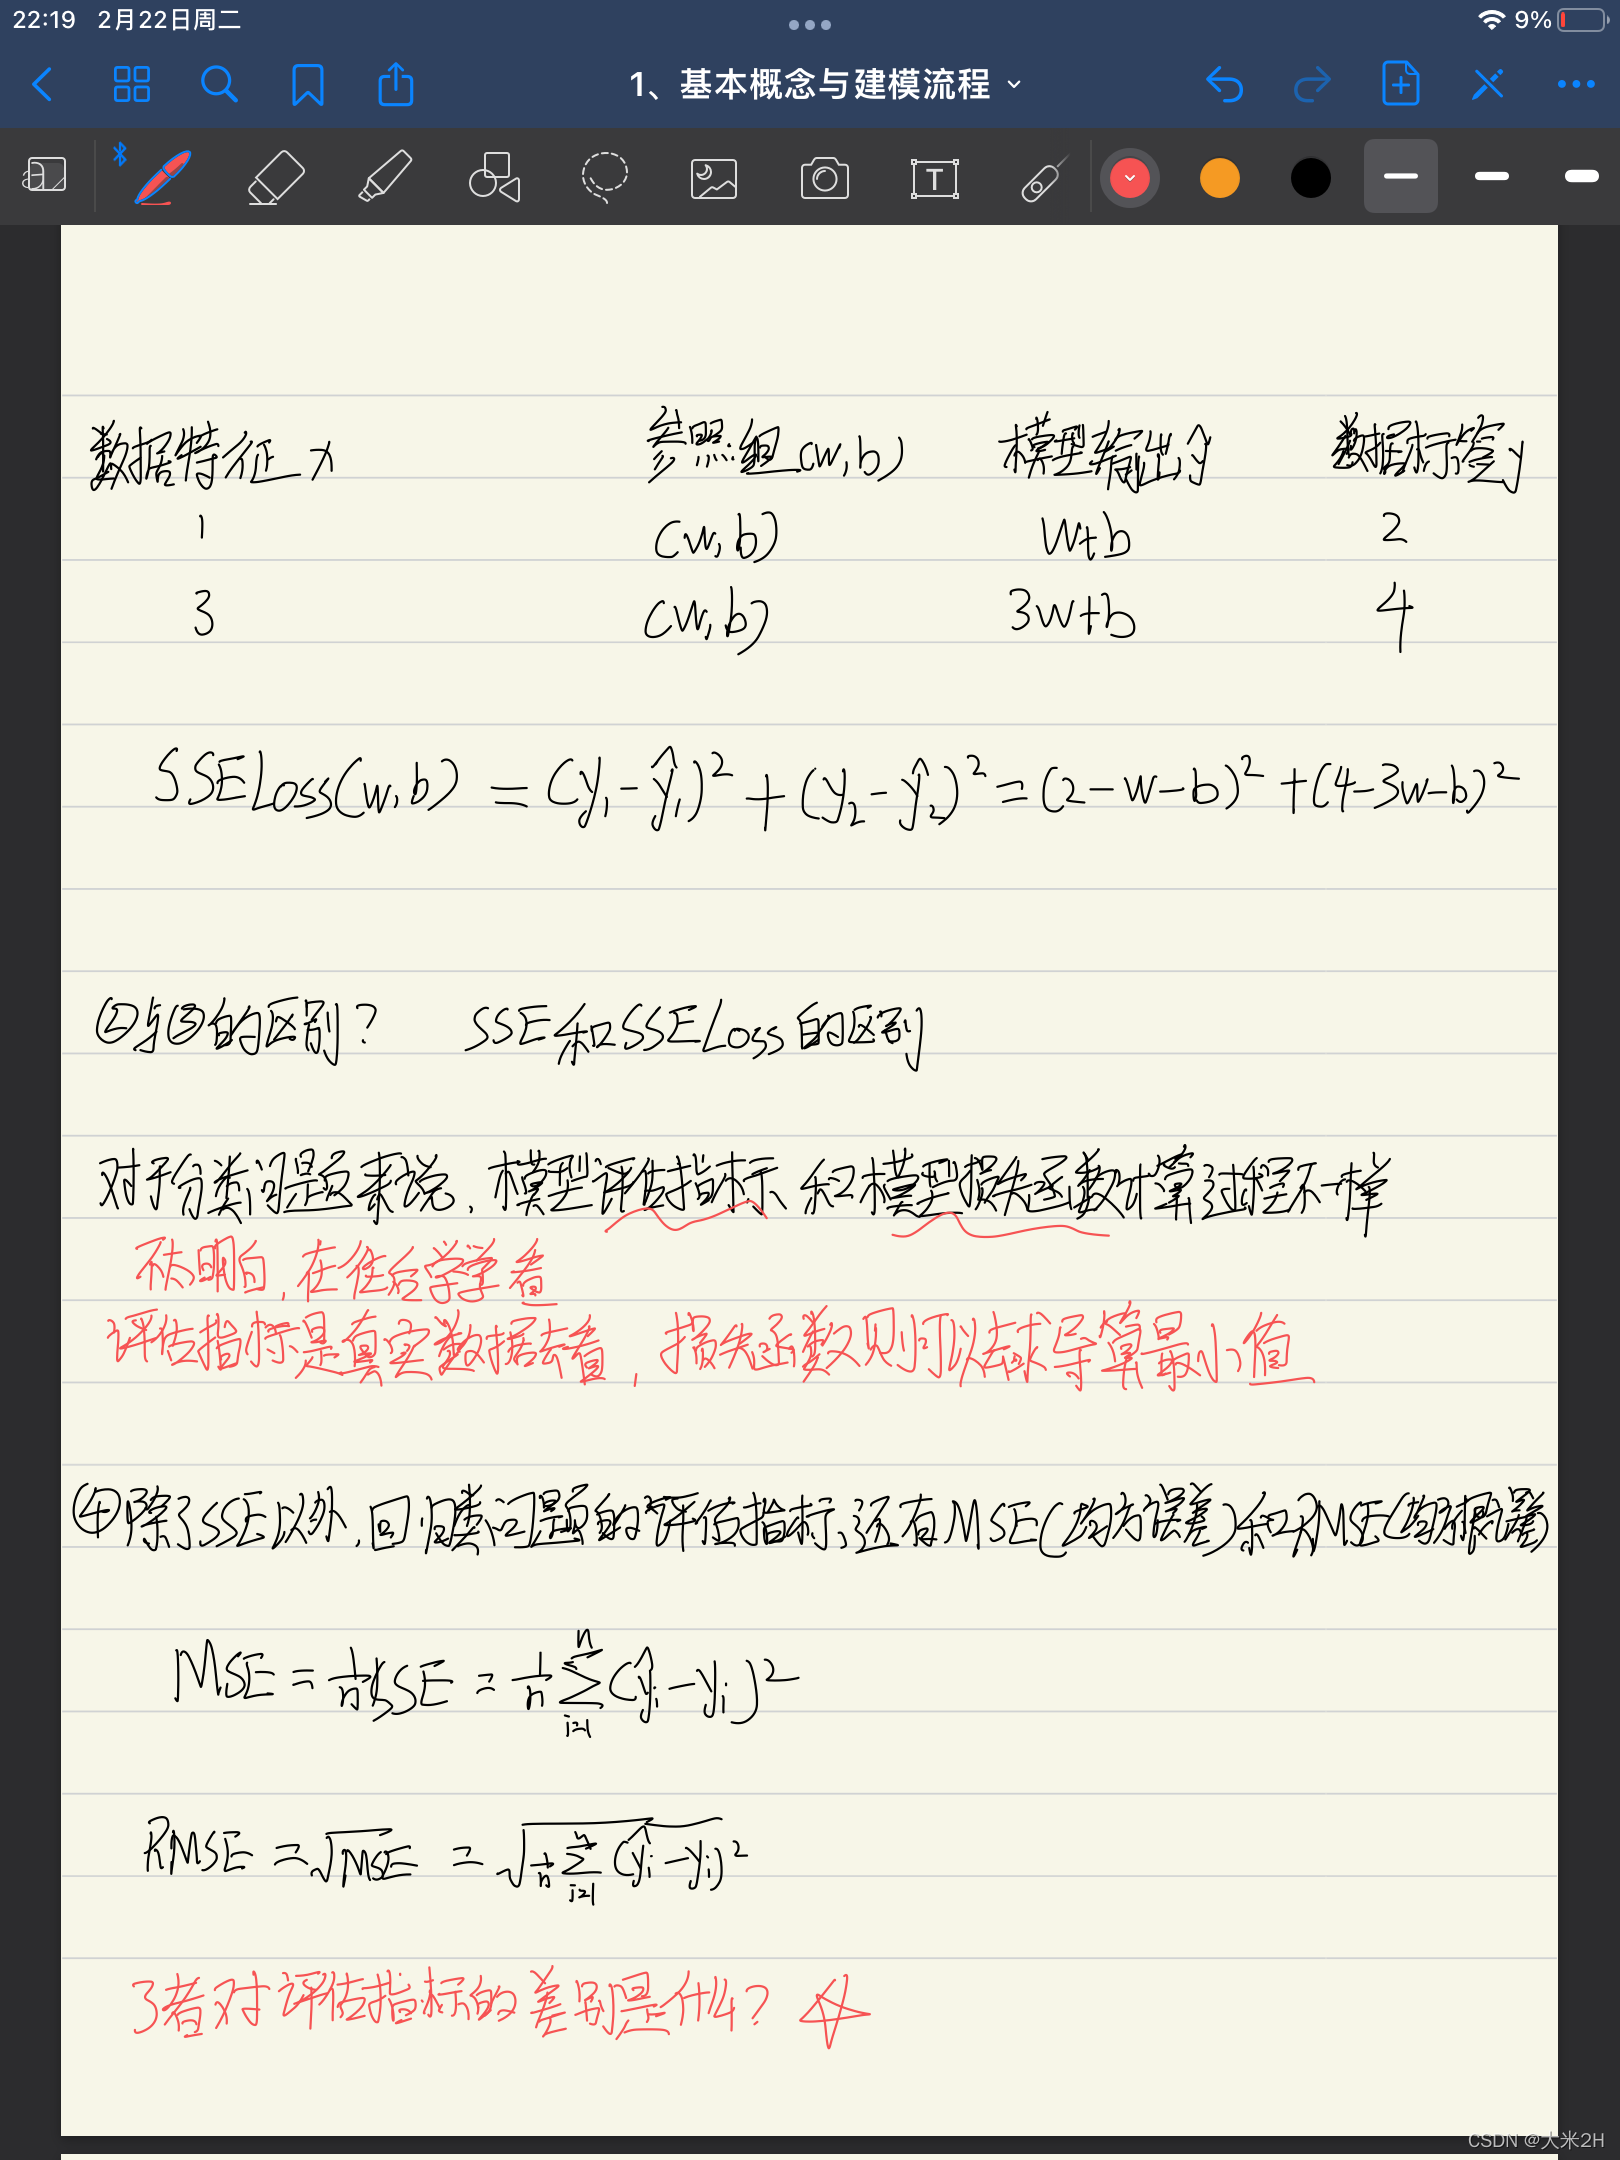 22:19 2月22日周二
9%
1、基本概念与建模流程
T
数据特征 x 参照组(w,b) 模型输出ŷ 数据标签y
1 (w,b) w+b 2
3 (w,b) 3w+b 4
SSELoss(w,b) = (y₁-ŷ₁)² + (y₂-ŷ₂)² = (2-w-b)² + (4-3w-b)²
②与③的区别? SSE和SSELoss的区别
对于分类问题来说,模型评估指标和模型损失函数计算过程不一样
不太明白,在往后学学看
评估指标是真实数据去看,损失函数则可以去求导算最小值
④除了SSE以外,回归类问题的评估指标,还有MSE(均方误差)和RMSE(均方根误差)
MSE = 1/n SSE = 1/n ∑ⁿᵢ₌₁ (ŷᵢ-yᵢ)²
RMSE = √MSE = √(1/n ∑ⁿᵢ₌₁ (ŷᵢ-yᵢ)²)
3者对评估指标的差别是什么? ☆
CSDN @大米2H